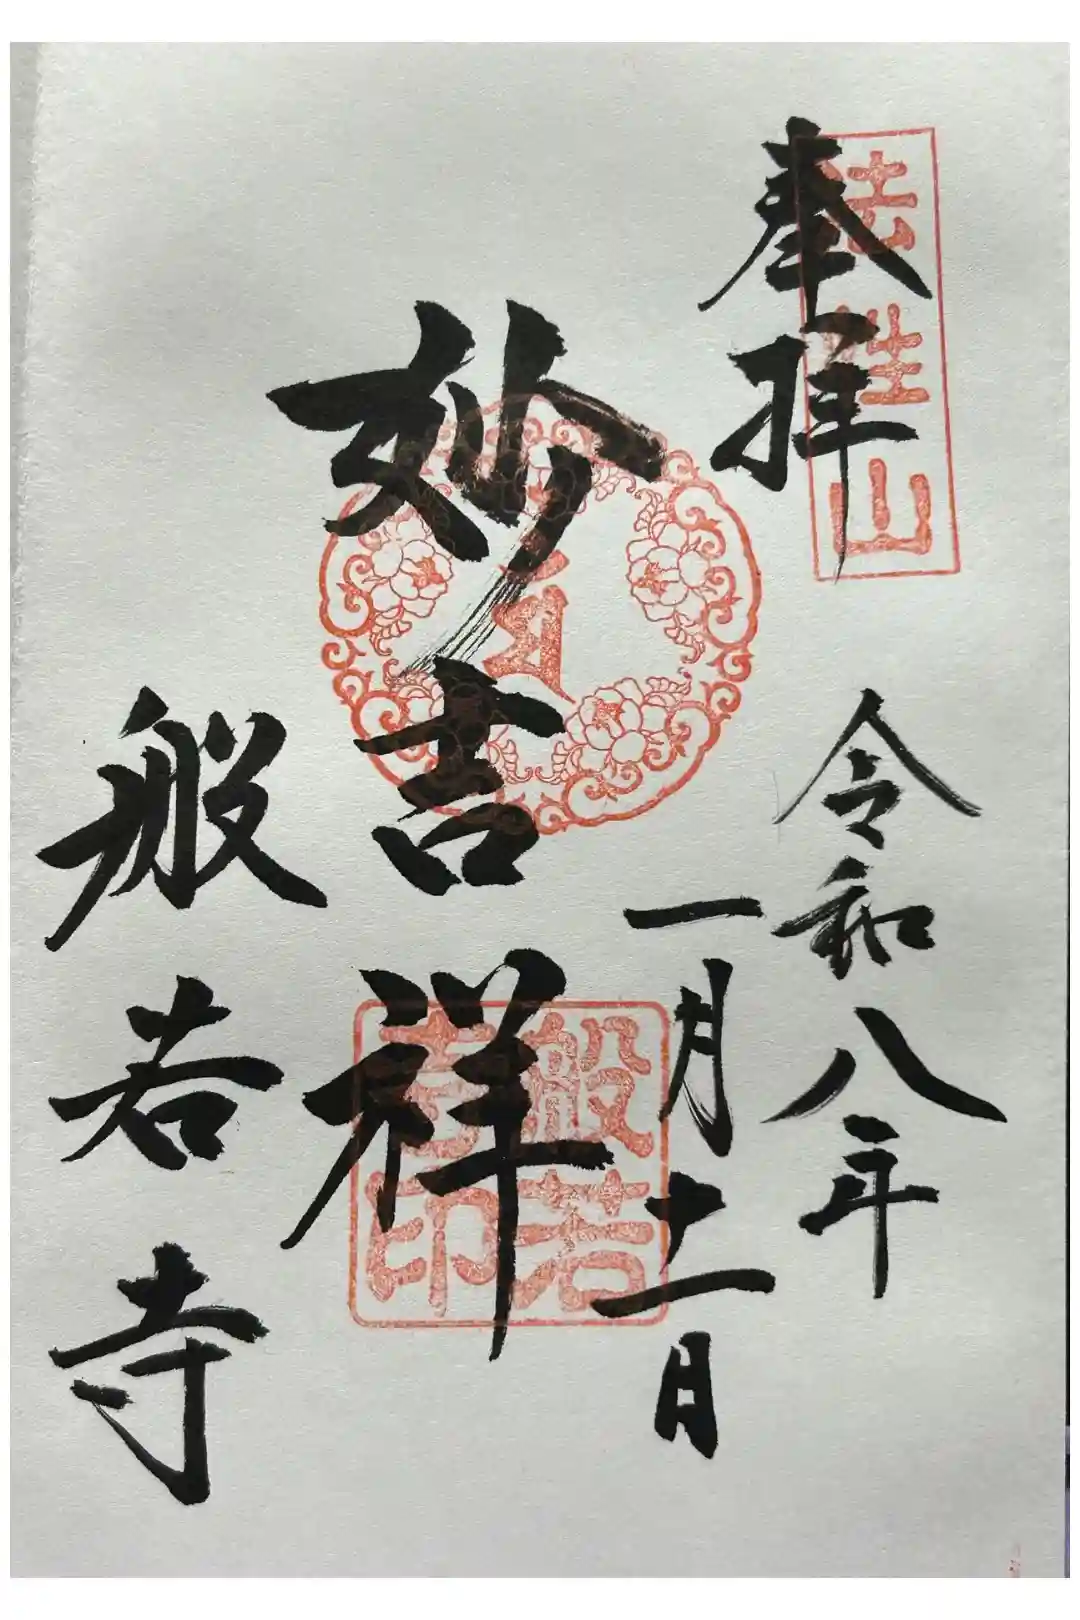 奉拝
法性山
令和八年
一月十一日
妙吉祥
般若寺
般若
寺印